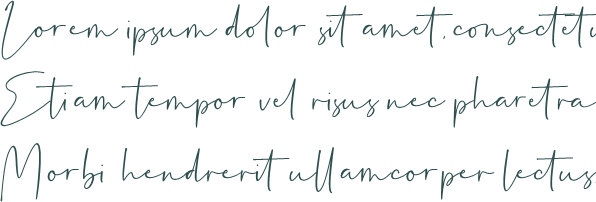 Lorem ipsum dolor sit amet, consectetu
Etiam tempor vel risus nec pharetra
Morbi hendrerit ullamcorper lectus